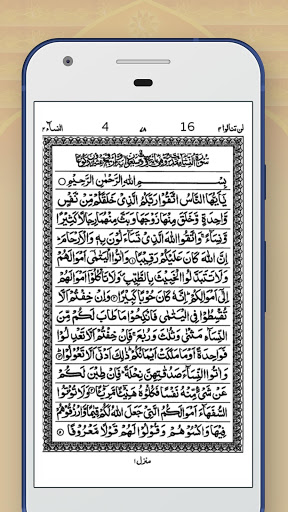 النساء ٤ 4 ٧٨ 16 لن تنالوا ٤
بِسْمِ اللهِ الرَّحْمٰنِ الرَّحِيْمِ
يٰۤاَيُّهَا النَّاسُ اتَّقُوْا رَبَّكُمُ الَّذِيْ خَلَقَكُمْ مِّنْ نَّفْسٍ
وَّاحِدَةٍ وَّخَلَقَ مِنْهَا زَوْجَهَا وَبَثَّ مِنْهُمَا رِجَالًا كَثِيْرًا
وَّنِسَآءً ۚ وَاتَّقُوا اللهَ الَّذِيْ تَسَآءَلُوْنَ بِهٖ وَالْاَرْحَامَ ؕ
اِنَّ اللهَ كَانَ عَلَيْكُمْ رَقِيْبًا ۝ وَاٰتُوا الْيَتٰمٰۤى اَمْوَالَهُمْ
وَلَا تَتَبَدَّلُوا الْخَبِيْثَ بِالطَّيِّبِ ۪ وَلَا تَاْكُلُوْۤا اَمْوَالَهُمْ
اِلٰۤى اَمْوَالِكُمْ ؕ اِنَّهٗ كَانَ حُوْبًا كَبِيْرًا ۝ وَاِنْ خِفْتُمْ اَلَّا
تُقْسِطُوْا فِي الْيَتٰمٰى فَانْكِحُوْا مَا طَابَ لَكُمْ مِّنَ
النِّسَآءِ مَثْنٰى وَثُلٰثَ وَرُبٰعَ ۚ فَاِنْ خِفْتُمْ اَلَّا تَعْدِلُوْا
فَوَاحِدَةً اَوْ مَا مَلَكَتْ اَيْمَانُكُمْ ؕ ذٰلِكَ اَدْنٰۤى اَلَّا تَعُوْلُوْا ۝
وَاٰتُوا النِّسَآءَ صَدُقٰتِهِنَّ نِحْلَةً ؕ فَاِنْ طِبْنَ لَكُمْ
عَنْ شَيْءٍ مِّنْهُ نَفْسًا فَكُلُوْهُ هَنِيْٓـًٔا مَّرِيْٓـًٔا ۝ وَلَا تُؤْتُوا
السُّفَهَآءَ اَمْوَالَكُمُ الَّتِيْ جَعَلَ اللهُ لَكُمْ قِيٰمًا وَّارْزُقُوْهُمْ
فِيْهَا وَاكْسُوْهُمْ وَقُوْلُوْا لَهُمْ قَوْلًا مَّعْرُوْفًا ۝
منزل ١